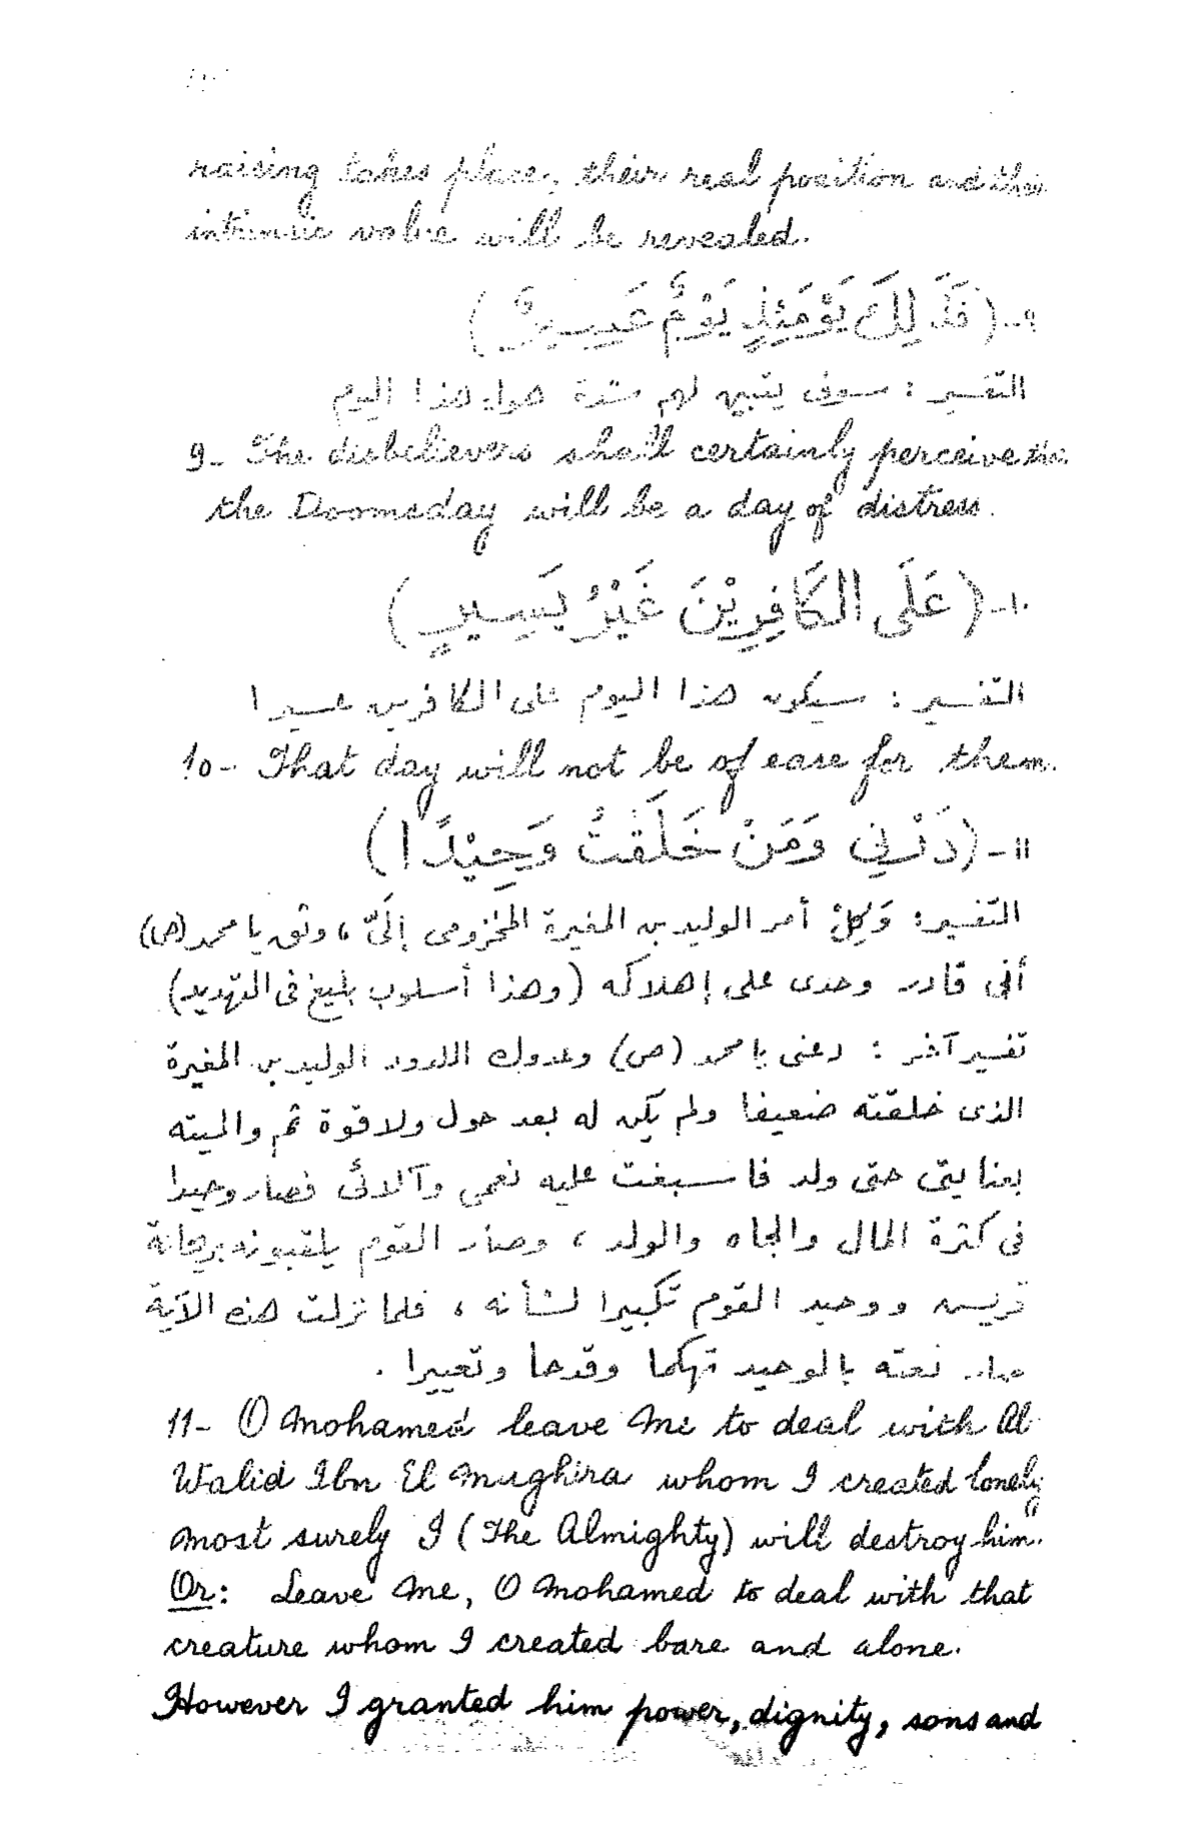 raising takes place, their real position and their
intrinsic value will be revealed.
٩- (فَذَلِكَ يَوْمَئِذٍ يَوْمٌ عَسِيرٌ)
التفسير : سوف يتبين لهم شدة هول هذا اليوم
9- The disbelievers shall certainly perceive that
the Doomsday will be a day of distress.
١٠- (عَلَى الكَافِرِيْنَ غَيْرُ يَسِيرٍ)
التفسير : سيكون هذا اليوم على الكافرين عسيرا
10- That day will not be of ease for them.
١١- (ذَرْنِي وَمَنْ خَلَقْتُ وَحِيْدًا)
التفسير: وَكِلْ أمر الوليد بن المغيرة المخزومى إلَىَّ ، وثق يا محمد (ص)
أنى قادر وحدى على إهلاكه (وهذا أسلوب بليغ فى التهديد)
تفسير آخر : دعنى يا محمد (ص) وعدوك اللدود الوليد بن المغيرة
الذى خلقته ضعيفا ولم يكن له بعد حول ولا قوة ثم واليته
بعنايتى حتى ولد فاسبغت عليه نعمى وآلائى فصار وحيدا
فى كثرة المال والجاه والولد ، وصار القوم يلقبونه بريحانة
قريش ووحيد القوم تكبيرا لشأنه ، فلما نزلت هذه الآية
صار نعته بالوحيد تهكما وقدحا وتعييرا .
11- O Mohamed leave Me to deal with Al
Walid Ibn El Mughira whom I created lonely
most surely I (The Almighty) will destroy him.
Or: Leave Me, O Mohamed to deal with that
creature whom I created bare and alone.
However I granted him power, dignity, sons and